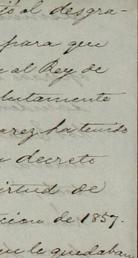 tó al desgra-
para que
al Rey de
lutamente
erez ha tenido
decreto
irtud de
cion de 1857.
le quedaban